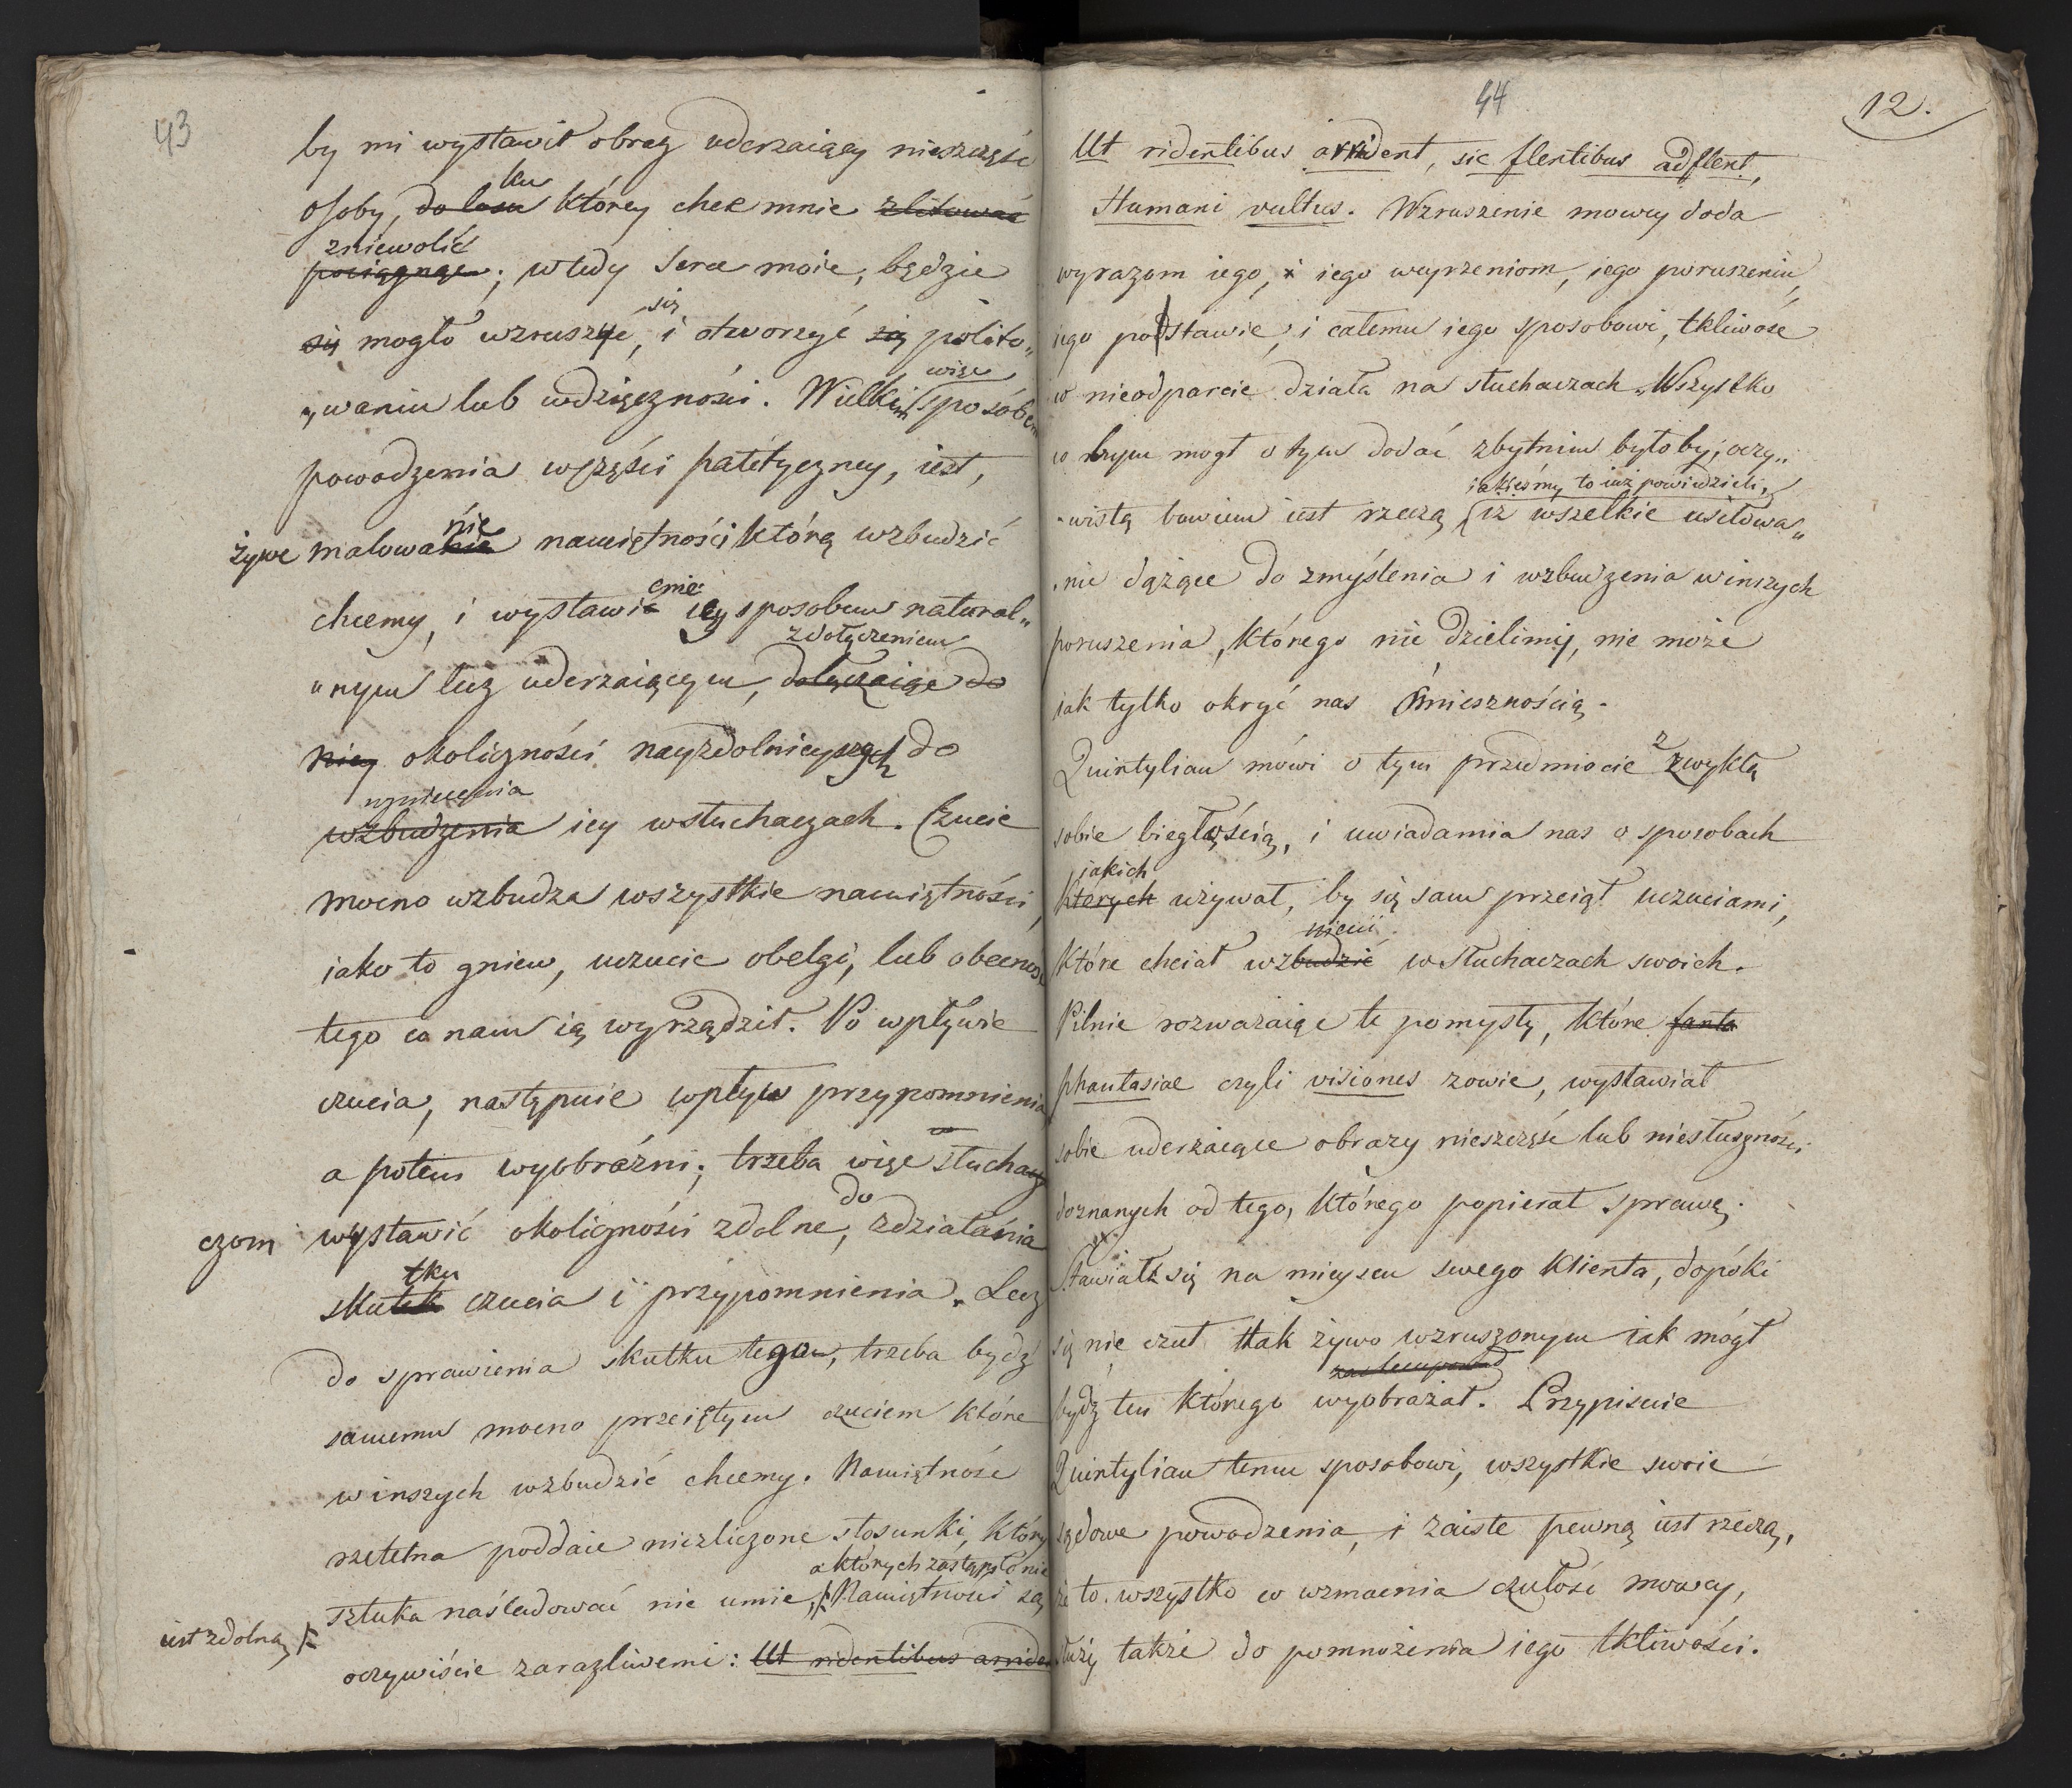 43
by mi wystawił obraz uderzaiący nieszczęść
ku
osoby, do losu którey chce mnie zlitować
zniewolić
pociągnąc; wtedy serce moie, będzie
się
się mogło wzruszyć, i otworzyć się polito„
więc
„waniu lub wdzięczności. Wielkim sposobem
powodzenia wczęści patétyczney, iest,
nie
żywe malowanie namiętności którą wzbudzić
enie
chcemy, i wystawić iey sposobem natural„
z dołączeniem
„nym lecz uderzaiącym, dołączaiąc do
niey okoliczności nayzdolnieyszych do
wzniecenia
wzbudzenia iey wsłuchaczach. Czucie
mocno wzbudza wszystkie namiętności,
iako to gniew, uczucie obelgi, lub obecność
tego co nam ią wyrządził. Po wpływie
czucia, następuie wpływ przypomnienia
a potem wyobraźni; trzeba więc słucha
do
czom wystawić okoliczności zdolne, zdziałania
tku
skutek czucia i przypomnienia. Lecz
do sprawienia skutku tego, trzeba bydź
samemu mocno przeiętym czuciem które
winszych wzbudzić chcemy. Namiętność
rzetelna poddaie niezliczone stosunki, który
a których zastąpić nie
sztuka naśladować nie umie, Namiętności są
iest zdolną
oczywiście zaraźliwemi: Ut ridentibus arriden
44
12.
Ut ridentibus arrident, sic flentibus adflent,
Humani vultus. Wzruszenie mowcy doda
wyrazom iego, i iego weyrzeniom, iego poruszeniu,
iego postawie, i całemu iego sposobowi, tkliwość
co nieodparcie działa na słuchaczach. Wszystko
co bym mogł o tym dodać zbytnim byłoby; oczy„
iakieśmy to iuż powiedzieli,
„wistą bowiem iest rzeczą iż wszelkie usiłowa„
„nie dążące do zmyślenia i wzbudzenia winszych
poruszenia, którego nie dzielimy, nie może
iak tylko okryć nas śmiesznością.
z
Quintylian mówi o tym przedmiocie zwykłą
sobie biegłością, i uwiadamia nas o sposobach
jakich
których używał, by się sam przeiął uczuciami,
niecić
które chciał wzbudzić wsłuchaczach swoich.
Pilnie rozważaiąc te pomysły, które fanta
phantasiae czyli visiones zowie, wystawiał
sobie uderzaiące obrazy nieszczęść lub niesłuszności
doznanych od tego, którego popierał sprawę.
Stawiał się na mieyscu swego klienta, dopóki
się nie czuł tak żywo wzruszonym iak mógł
bydź ten którego wyobrażał. Przypisuie
Quintylian temu sposobowi, wszystkie swoie
sądowe powodzenia, i zaiste pewną iest rzeczą,
że to wszystko co wzmacnia czułość mowcy,
służy także do pomnożenia iego tkliwości.